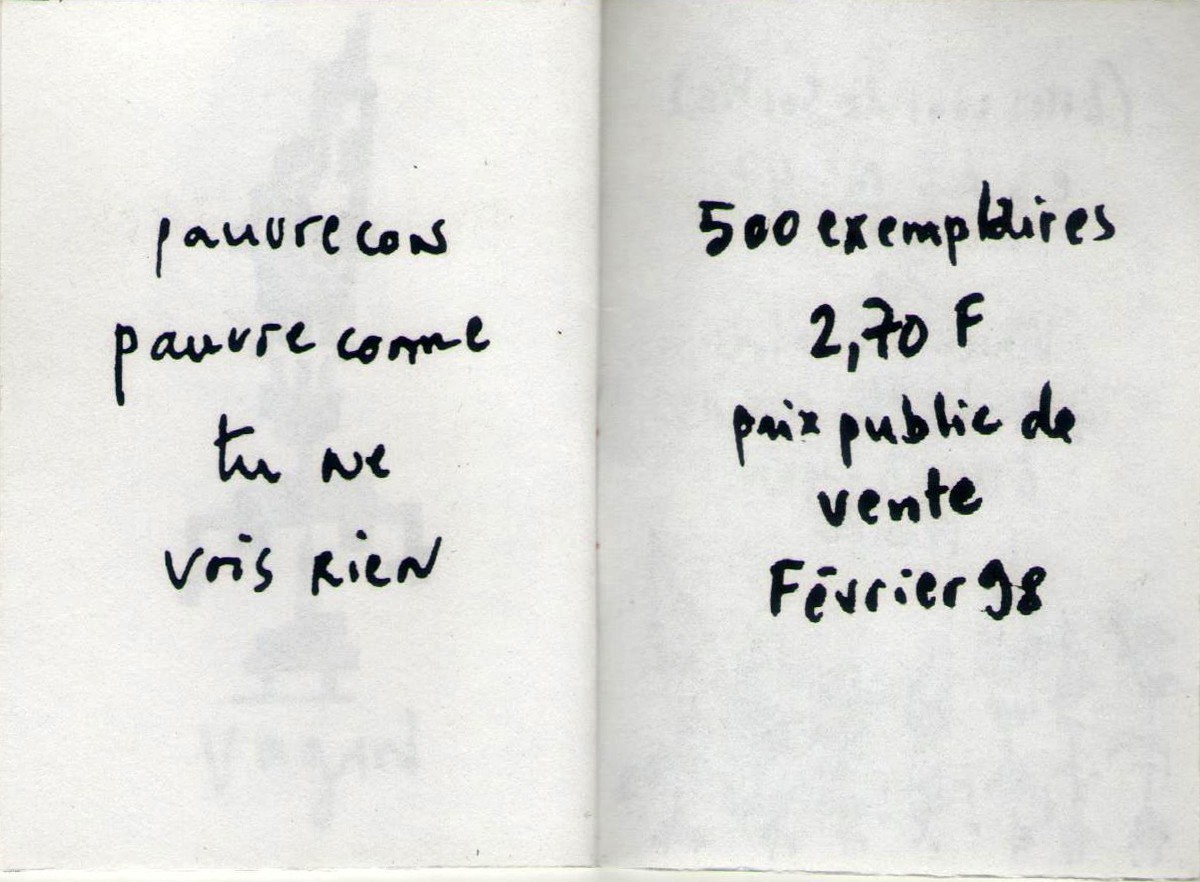 pauvre cons
pauvre comme
tu ne
vois rien
500 exemplaires
2,70 F
prix public de
vente
Février 98